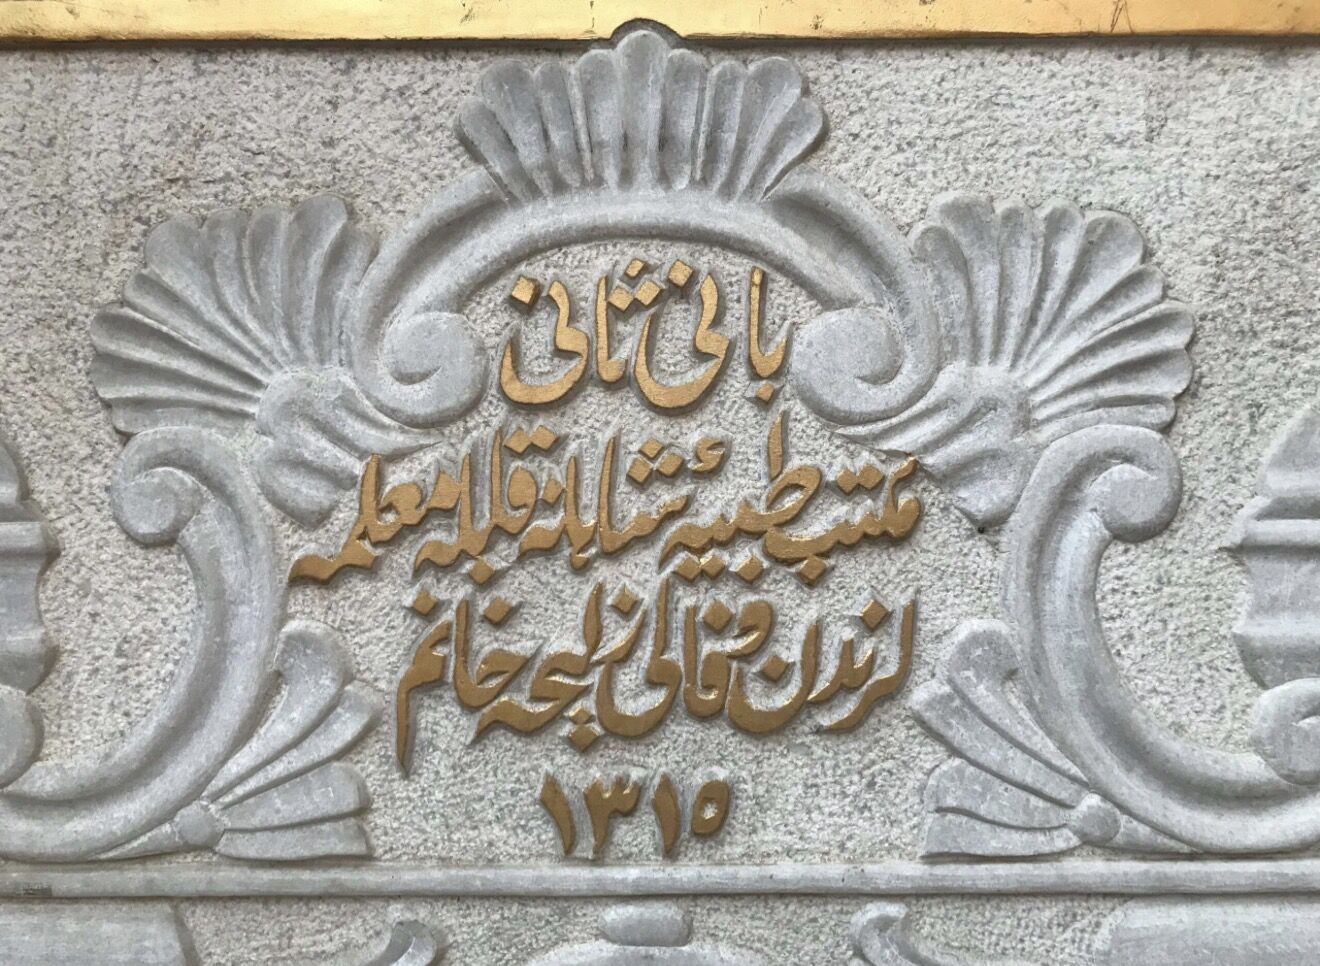 بانی ثانی
مكتب طبیۀ شاهانه قبله معلمه
لرندن وفالی زلیجه خانم
١٣١٥